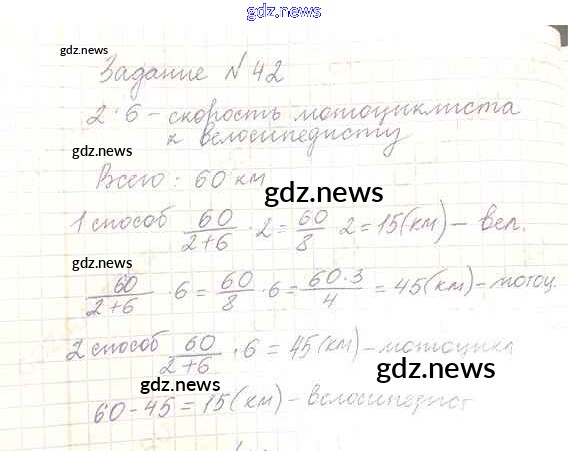 gdz.news
gdz.news
Задание №42
2:6 - скорость мотоциклиста
к велосипедисту
gdz.news
Всего: 60 км
gdz.news
1 способ 60/2+6 · 2 = 60/8 2 = 15 (км) - вел.
gdz.news
60/2+6 · 6 = 60/8 · 6 = 60·3/4 = 45 (км) - мотоц.
2 способ 60/2+6 · 6 = 45 (км) - мотоцикл
gdz.news
gdz.news
60 - 45 = 15 (км) - велосипедист